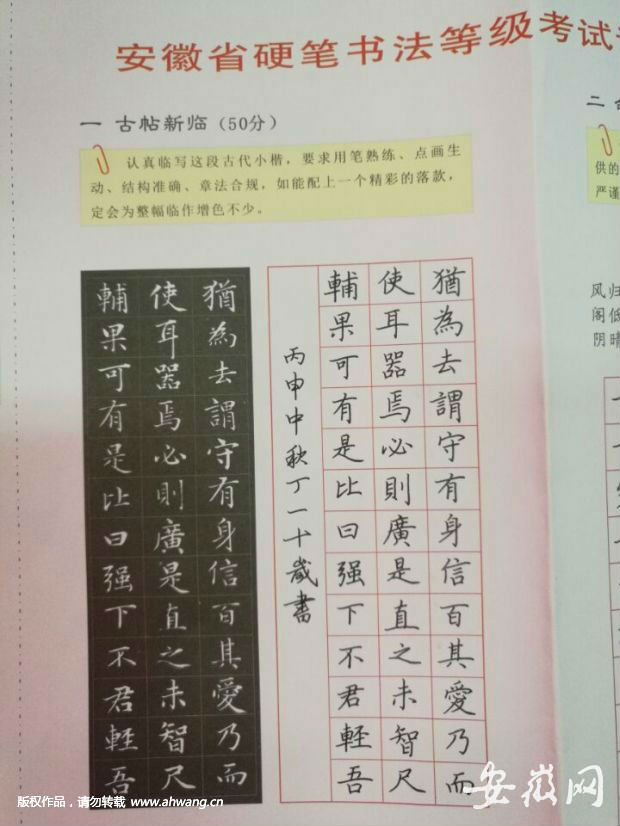 安徽省硬笔书法等级考试
一 古帖新临（50分）
认真临写这段古代小楷，要求用笔熟练、点画生
动、结构准确、章法合规，如能配上一个精彩的落款，
定会为整幅临作增色不少。
猶為去謂守有身信百其愛乃而
使耳器焉必則廣是直之未智尺
輔果可有是比曰强下不君輕吾
猶為去謂守有身信百其愛乃而
使耳器焉必則廣是直之未智尺
輔果可有是比曰强下不君輕吾
丙申中秋丁一十歲書
二
供的
严谨
风归
阁低
阴晴
版权作品，请勿转载 www.ahwang.cn
安徽网